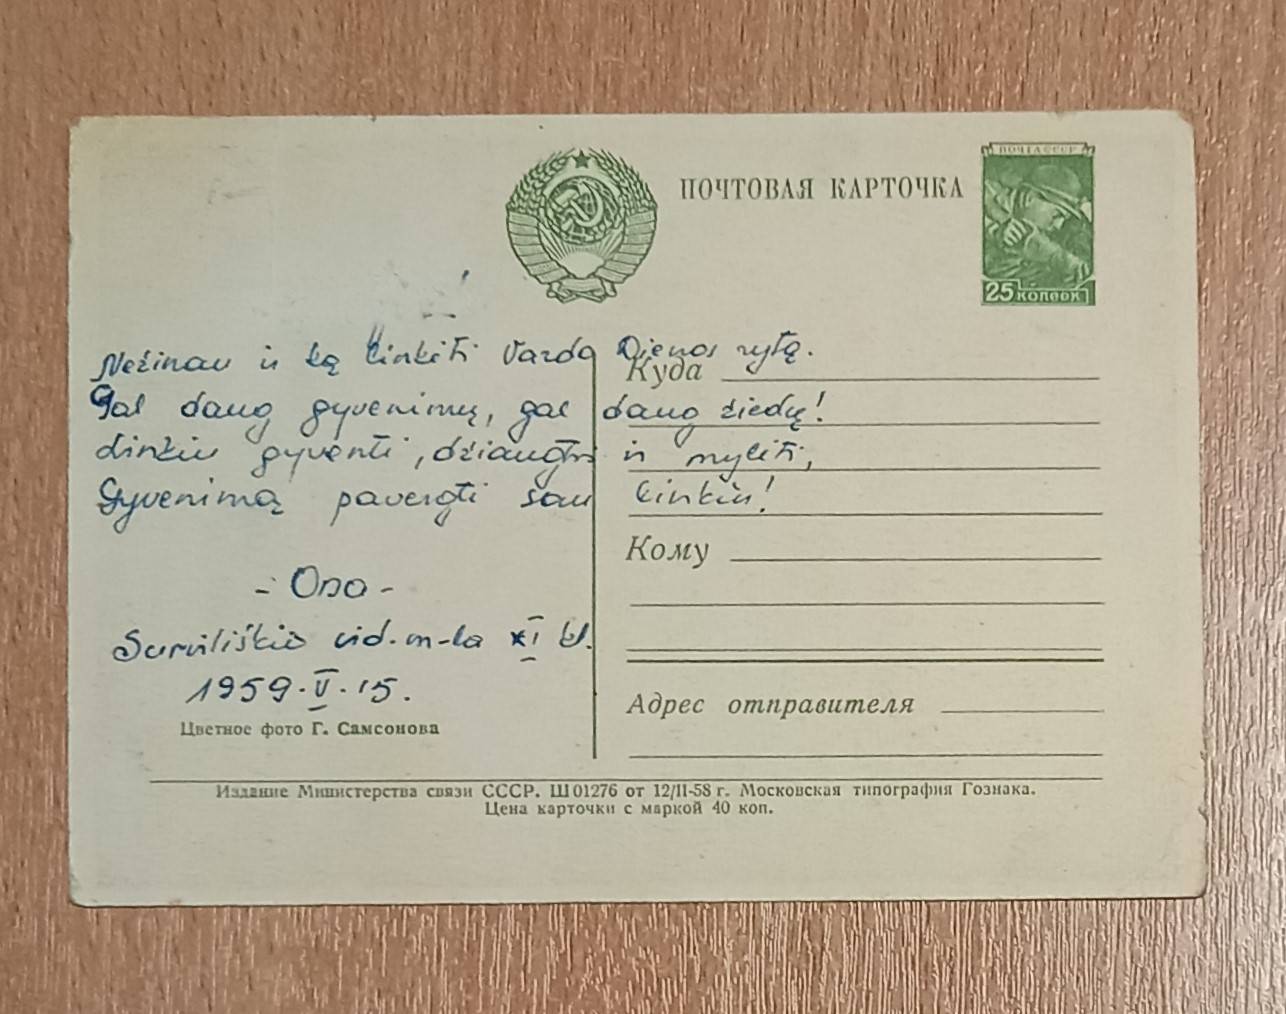 ПОЧТА СССР
ПОЧТОВАЯ КАРТОЧКА
25 копеек
Nežinau ir ką linkėti Vardo Dienos rytą.
Gal daug gyvenimų, gal daug žiedų!
Linkiu gyventi, džiaugtis ir mylėti,
Gyvenimą paversti sau linkiu!
- Ona -
Surviliškio vid. m-la XI kl.
1959.V.15.
Цветное фото Г. Самсонова
Куда
Кому
Адрес отправителя
Издание Министерства связи СССР. Ш 01276 от 12/II-58 г. Московская типография Гознака.
Цена карточки с маркой 40 коп.